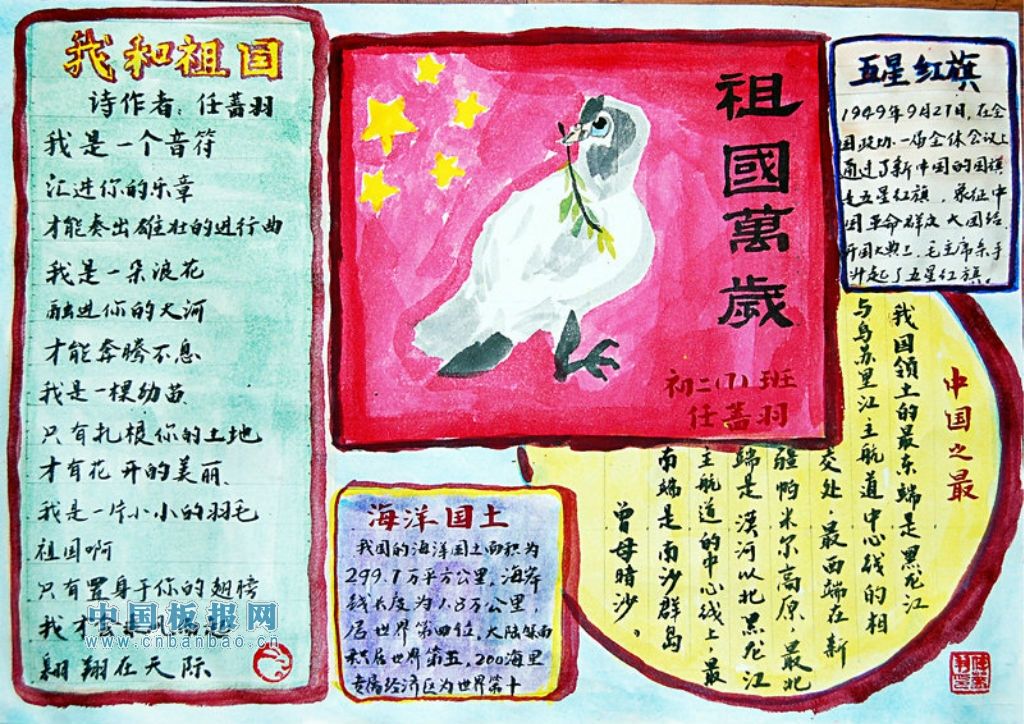 我和祖国
诗作者:任蔷羽
我是一个音符
汇进你的乐章
才能奏出雄壮的进行曲
我是一朵浪花
融进你的大河
才能奔腾不息
我是一棵幼苗
只有扎根你的土地
才有花开的美丽、
我是一片小小的羽毛
祖国啊
只有置身于你的翅膀
我才
翱翔在天际
中国板报网
www.cnbanbao.cn
祖國萬歲
初二(7)班
任蔷羽
五星红旗
1949年9月27日,在全
国政协一届全体会议上
通过了新中国的国旗
是五星红旗,象征中
国革命群众大团结.
开国大典上,毛主席亲手
升起了五星红旗.
海洋国土
我国的海洋国土面积为
299.7万平方公里,海岸
线长度为1.8万公里
居世界第四位,大陆架面
积居世界第五,200海里
专属经济区为世界第十
中国之最
我国领土的最东端是黑龙江
与乌苏里江主航道中心线的相
交处,最西端在新
疆帕米尔高原,最北
端是漠河以北黑龙江
主航道的中心线上,最
南端是南沙群岛
曾母暗沙。